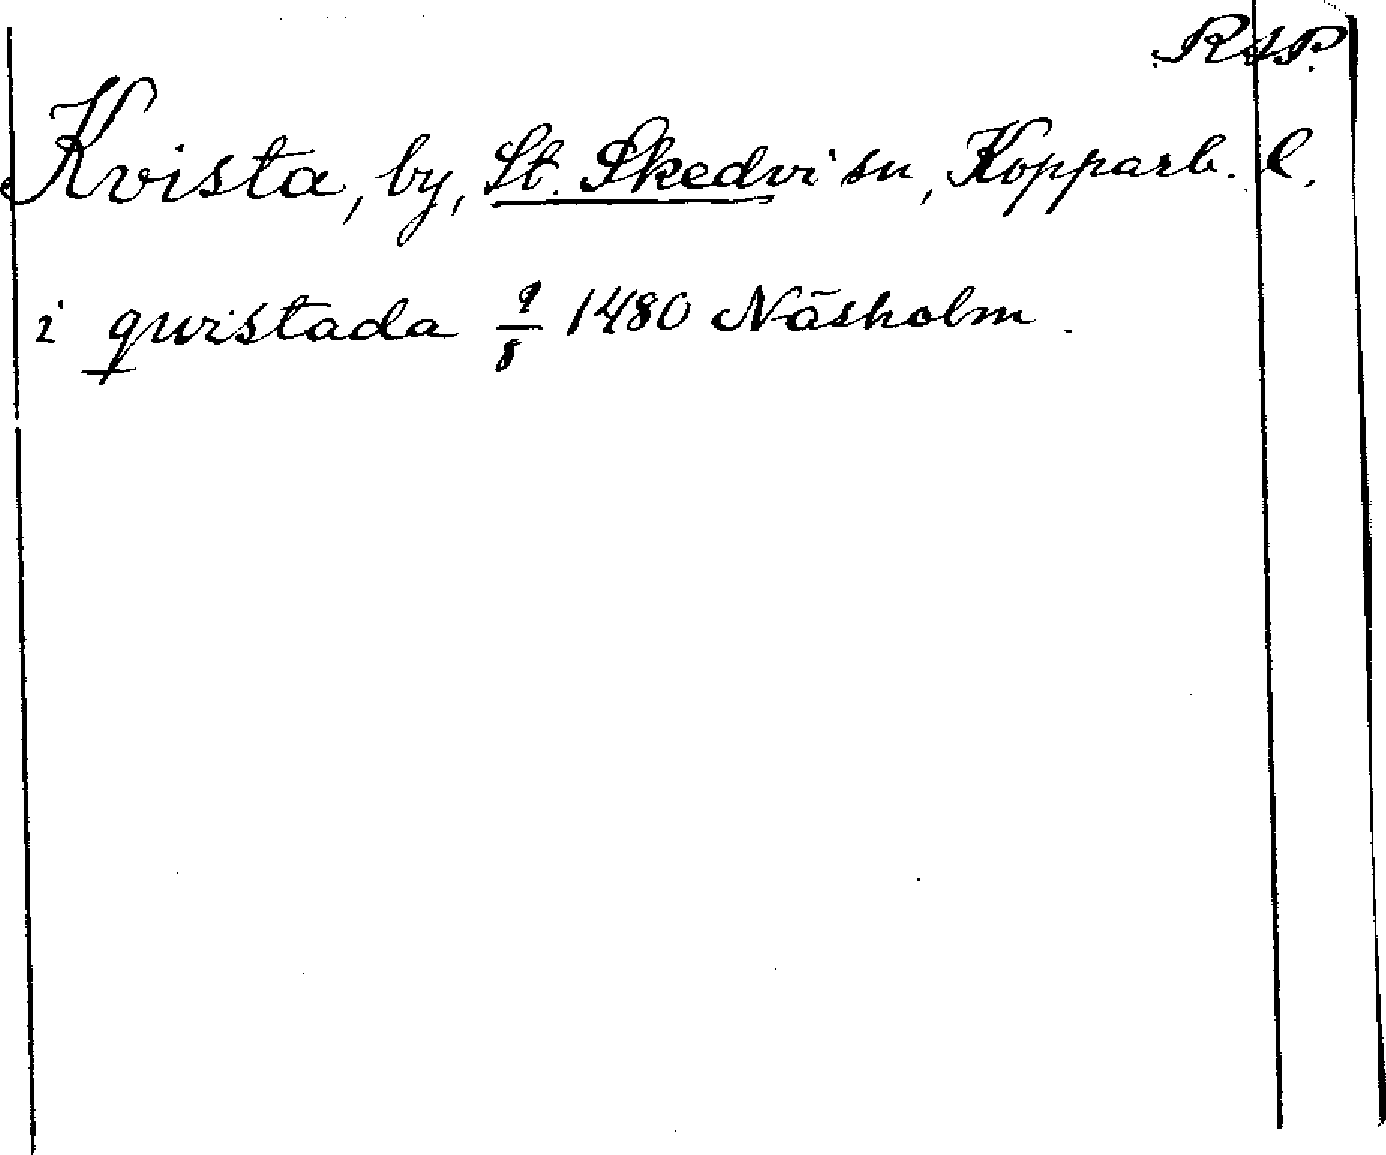 RAP.
Kvista, by, St. Skedvi sn, Kopparb. l.
i qwistada 9/8 1480 Näsholm.